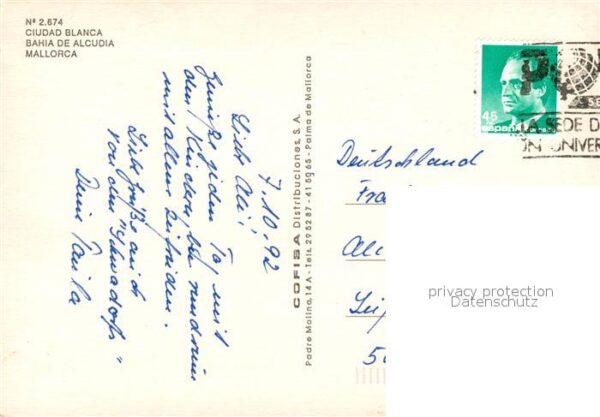 Nº 2.674
CIUDAD BLANCA
BAHIA DE ALCUDIA
MALLORCA
7.10.92
Liebe Ali!
Genieße jeden Tag mit
den Kindern, bin rundrum
mit allem zufrieden.
Liebe Grüße auch
von den "Schwadorfs"
Deine Paula
COFISA Distribuciones, S. A.
Padre Molina, 14 A - Tels. 295287 - 415065 - Palma de Mallorca
45
españa
SEDE D
UN UNIVER
Deutschland
Fra
5
privacy protection
Datenschutz